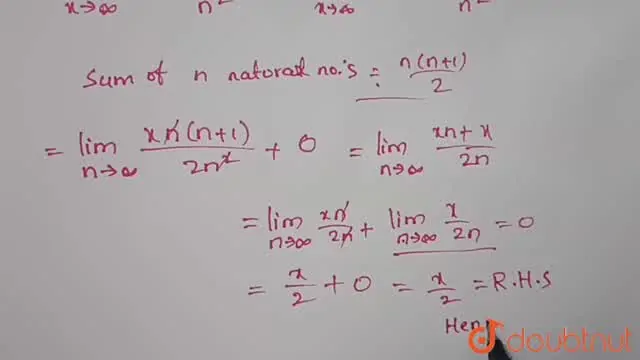 x→∞ n² x→∞ n²
Sum of n natural no.'s = n(n+1)/2
= lim n→∞ xn(n+1)/2n² + 0 = lim n→∞ xn+x/2n
= lim n→∞ xn/2n + lim n→∞ x/2n = 0
= x/2 + 0 = x/2 = R.H.S
Hen
doubtnut